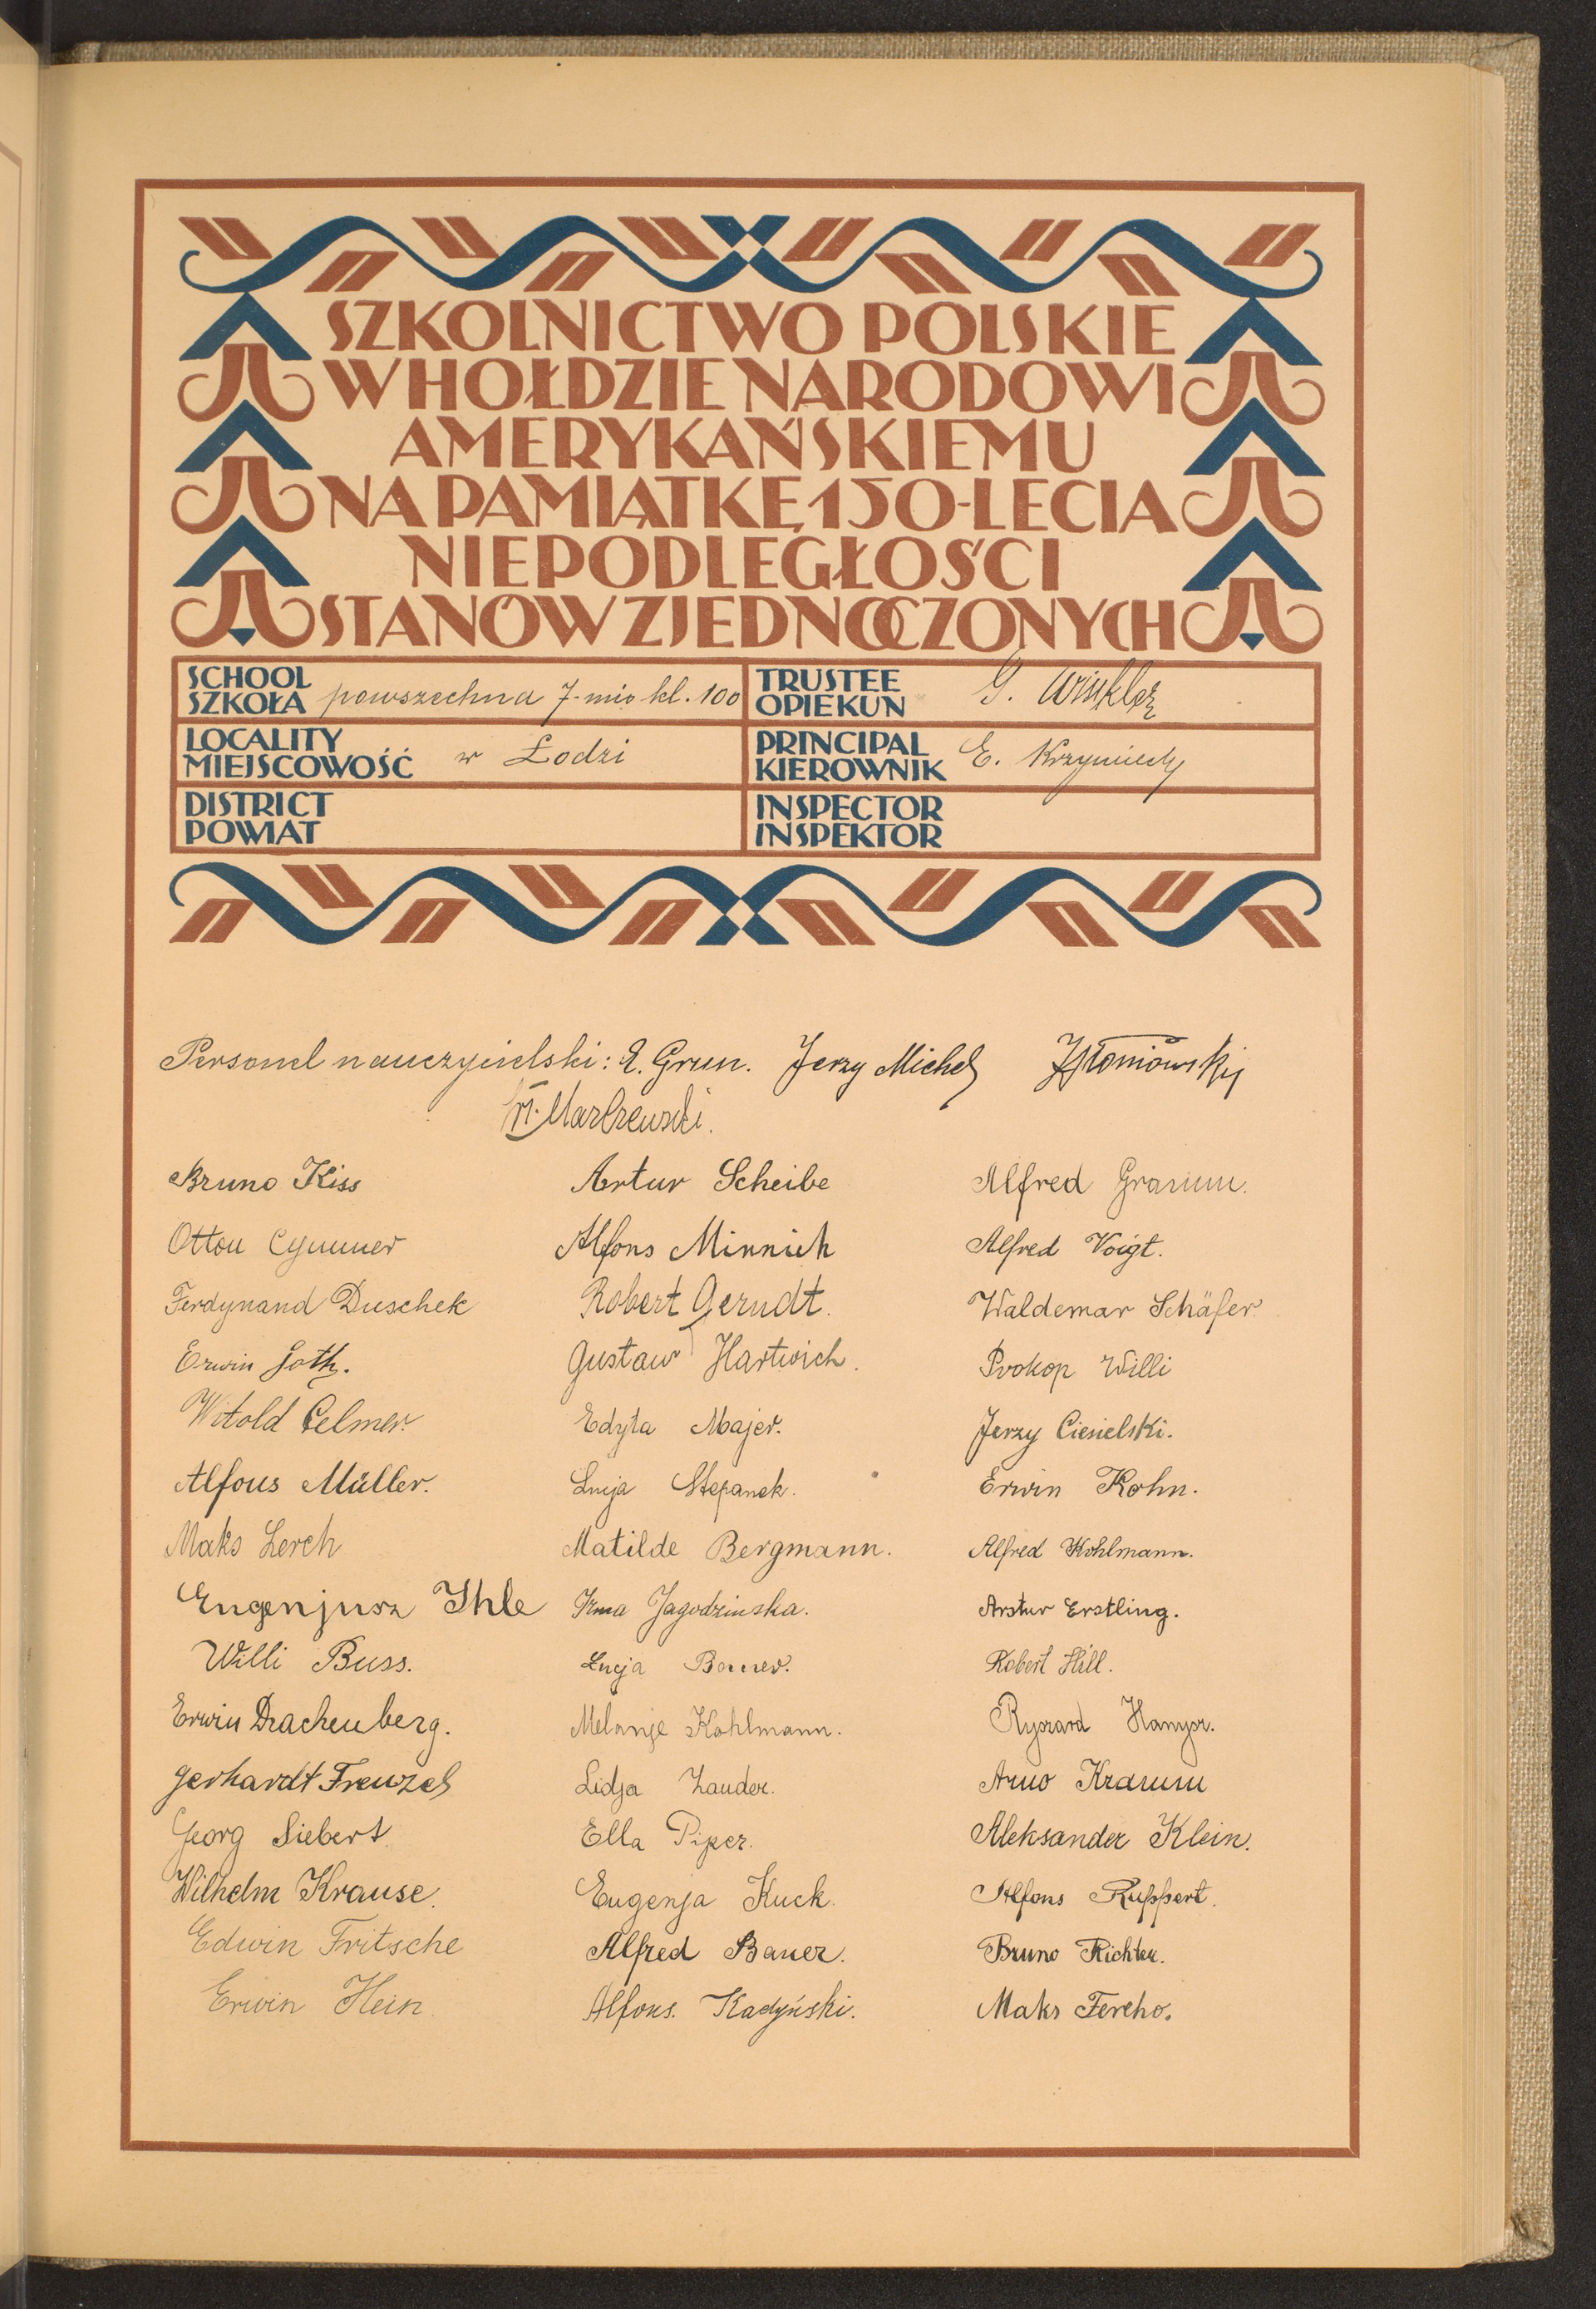 SZKOLNICTWO POLSKIE
W HOŁDZIE NARODOWI
AMERYKAŃSKIEMU
NA PAMIĄTKĘ 150-LECIA
NIEPODLEGŁOŚCI
STANÓW ZJEDNOCZONYCH
SCHOOL
SZKOŁA powszechna 7-mio kl. 100
TRUSTEE
OPIEKUN G. Winkler
LOCALITY
MIEJSCOWOŚĆ w Łodzi
PRINCIPAL
KIEROWNIK E.
DISTRICT
POWIAT
INSPECTOR
INSPEKTOR
Personel nauczycielski: E. Grun. Jerzy Michel
Bruno Kiss
Artur Scheibe
Alfred Gramm.
Otton Cymmer
Alfons Minnich
Alfred Voigt.
Ferdynand Duschek
Robert Gerndt.
Waldemar Schäfer
Erwin Goth.
Gustaw Hartwich.
Prokop Willi
Witold Celmer.
Edyta Majer.
Jerzy Ciesielski.
Alfons Müller.
Łucja Stepanek.
Erwin Kohn.
Maks Lerch
Matilde Bergmann.
Alfred Kohlmann.
Eugenjusz Ihle
Irma Jagodzinska.
Artur Erstling.
Willi Buss.
Łucja
Robert Hill.
Erwin Drachenberg.
Melanje Kohlmann.
Ryszard Hanysz.
Gerhardt Frenzel
Lidja Zauder.
Arno Kramm
Georg Siebert
Ella Piper.
Aleksander Klein.
Wilhelm Krause.
Eugenja Kuck.
Alfons Ruppert.
Edwin Fritsche
Alfred Bauer.
Bruno Richter.
Erwin Hein.
Alfons. Kadyński.
Maks Fercho.